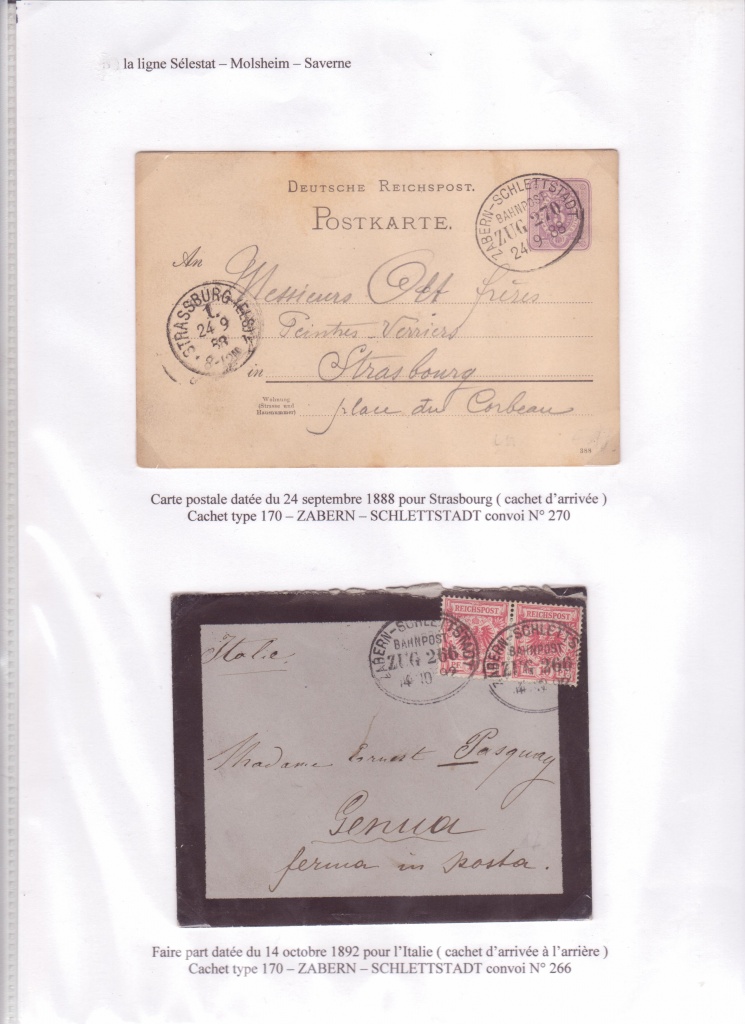 la ligne Sélestat – Molsheim – Saverne
DEUTSCHE REICHSPOST.
POSTKARTE.
ZABERN-SCHLETTSTADT
BAHNPOST
ZUG 270
24 9 88
An Messieurs Ott frères
STRASSBURG (ELS)
1.
24 9
88
Peintres Verriers
in Strasbourg
Wohnung
(Strasse und
Hausnummer)
place du Corbeau
388
Carte postale datée du 24 septembre 1888 pour Strasbourg ( cachet d’arrivée )
Cachet type 170 – ZABERN – SCHLETTSTADT convoi N° 270
REICHSPOST REICHSPOST
ZABERN-SCHLETTSTADT
BAHNPOST
ZUG 266
ZABERN-SCHLETTS
BAHNPOST
ZUG 266
Italie.
Madame Ernest Pasquay
Genua
ferma in posta.
Faire part datée du 14 octobre 1892 pour l’Italie ( cachet d’arrivée à l’arrière )
Cachet type 170 – ZABERN – SCHLETTSTADT convoi N° 266